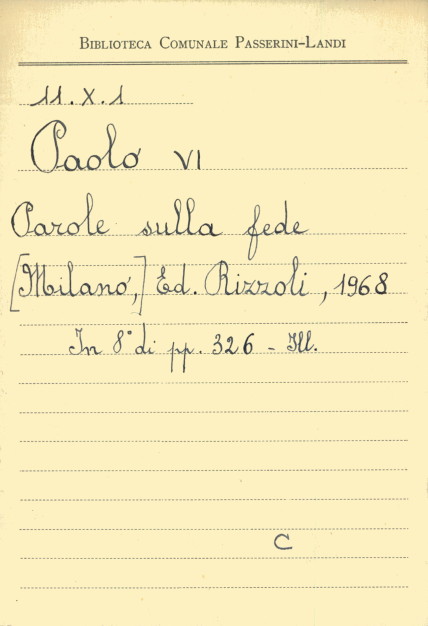 BIBLIOTECA COMUNALE PASSERINI-LANDI
11.X.1
Paolo VI
Parole sulla fede
[Milano,] Ed. Rizzoli, 1968
In 8° di pp. 326 - Ill.
C